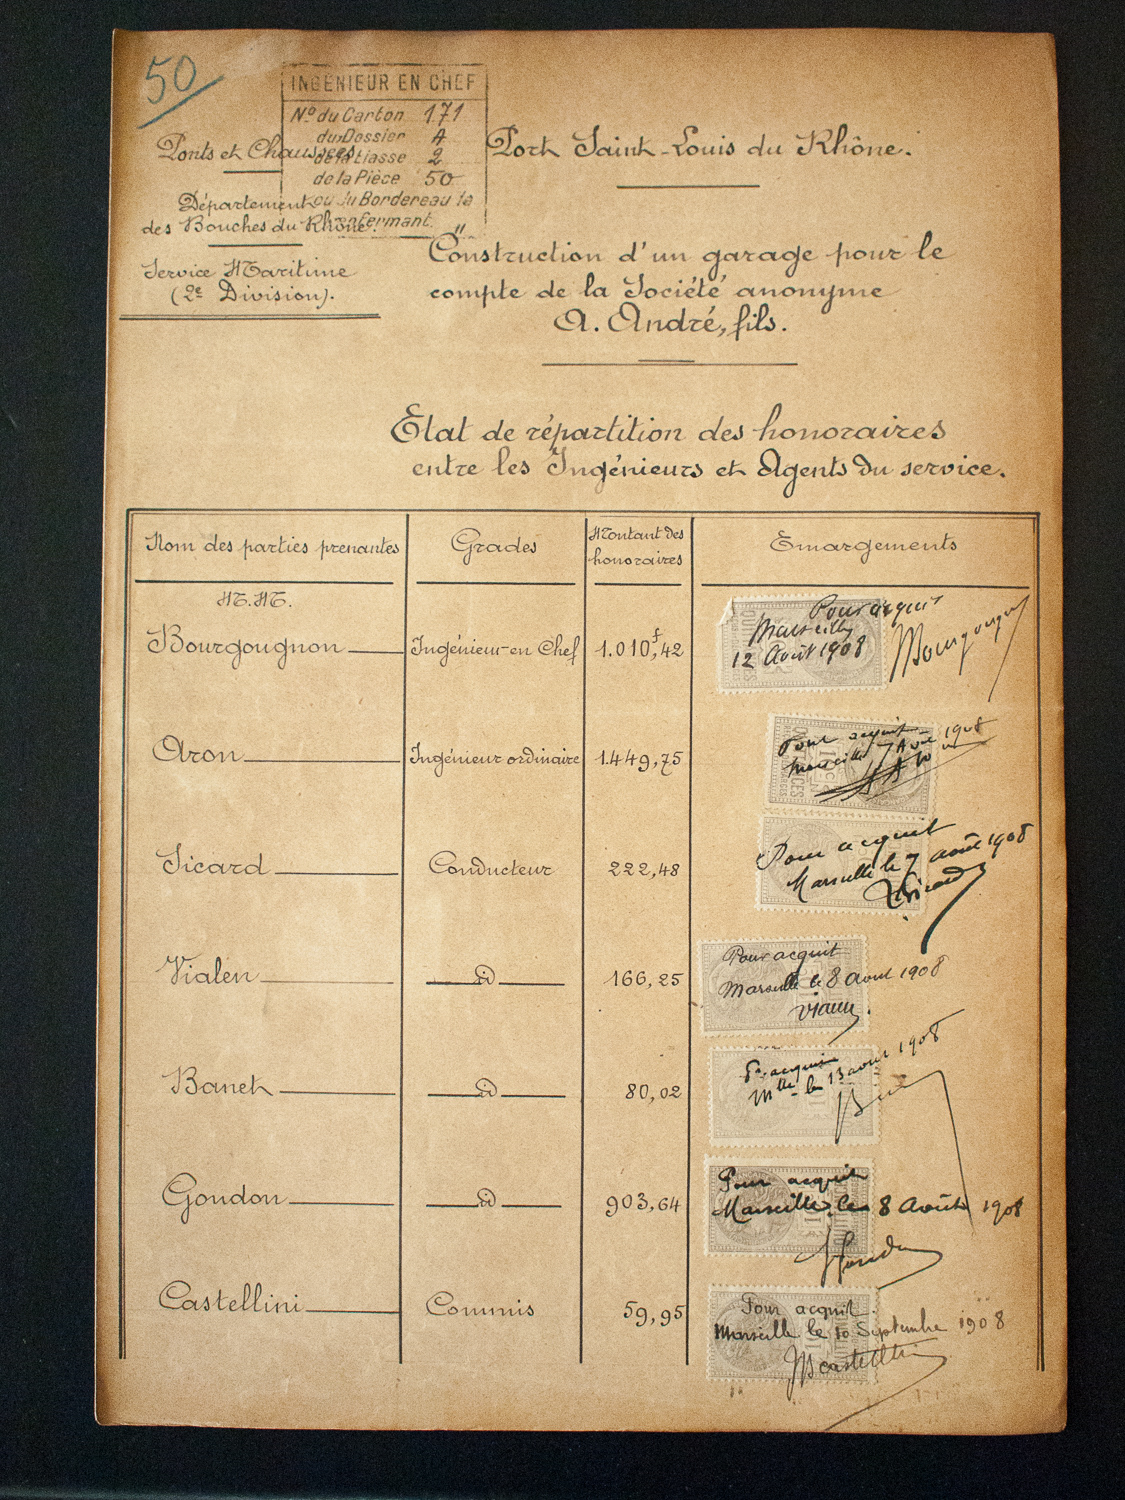 50
INGÉNIEUR EN CHEF
No du Carton 171
du Dossier A
de la Liasse 2
de la Pièce 50
ou du Bordereau la
renfermant "
Ponts et Chaussées
Département
des Bouches du Rhône.
Service Maritime
(2e Division).
Port Saint-Louis du Rhône.
Construction d'un garage pour le
compte de la Société anonyme
A. André, fils.
Etat de répartition des honoraires
entre les Ingénieurs et Agents du service.
Nom des parties prenantes Grades Montant des honoraires Emargements
M.M.
Bourgougnon Ingénieur en Chef 1.010f,42
Pour acquit
Marseille
12 Août 1908
Bourgougnon
Aron Ingénieur ordinaire 1.449,75
Pour acquit
Marseille 7 Août 1908
Aron
Sicard Conducteur 222,48
Pour acquit
Marseille le 7 août 1908
Sicard
Vialen id 166,25
Pour acquit
Marseille le 8 Aout 1908
Banet id 80,02
Pr acquit
Mlle le 13 aout 1908
Gondon id 903,64
Pour acquit
Marseille le 8 Août 1908
Gondon
Castellini Commis 59,95
Pour acquit
Marseille le 10 Septembre 1908
Castellini